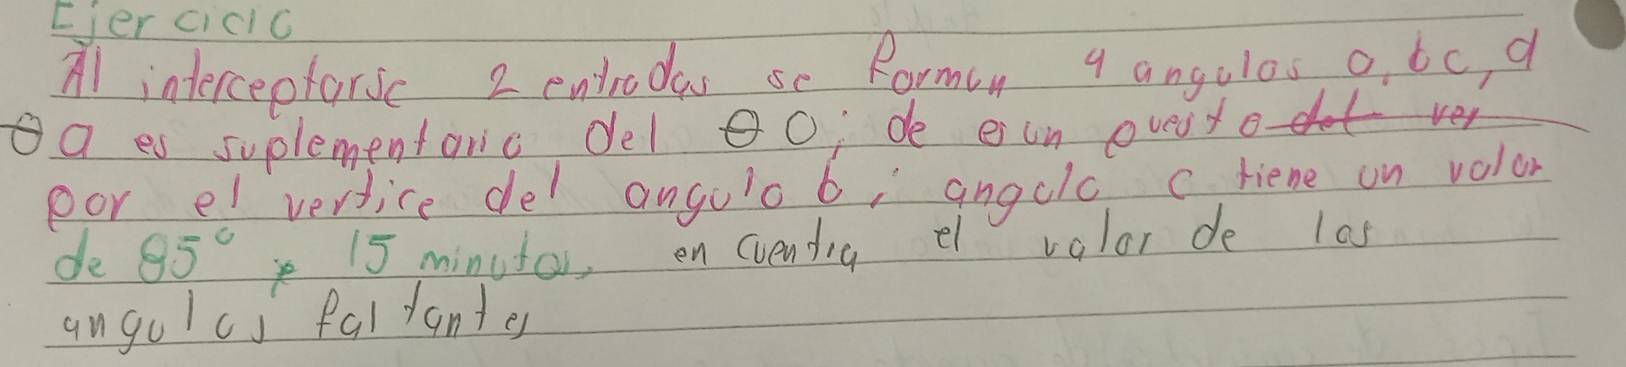 Ejercicic
Al interceptarse 2 entradas se formen 4 angulos a, b c, d
θ a es suplementario del θ O; de es un opuesto del ver
por el vertice del angulo b; angulo c tiene un valor
de 85° y 15 minutos, en cuentra el valor de las
angulos faltantes